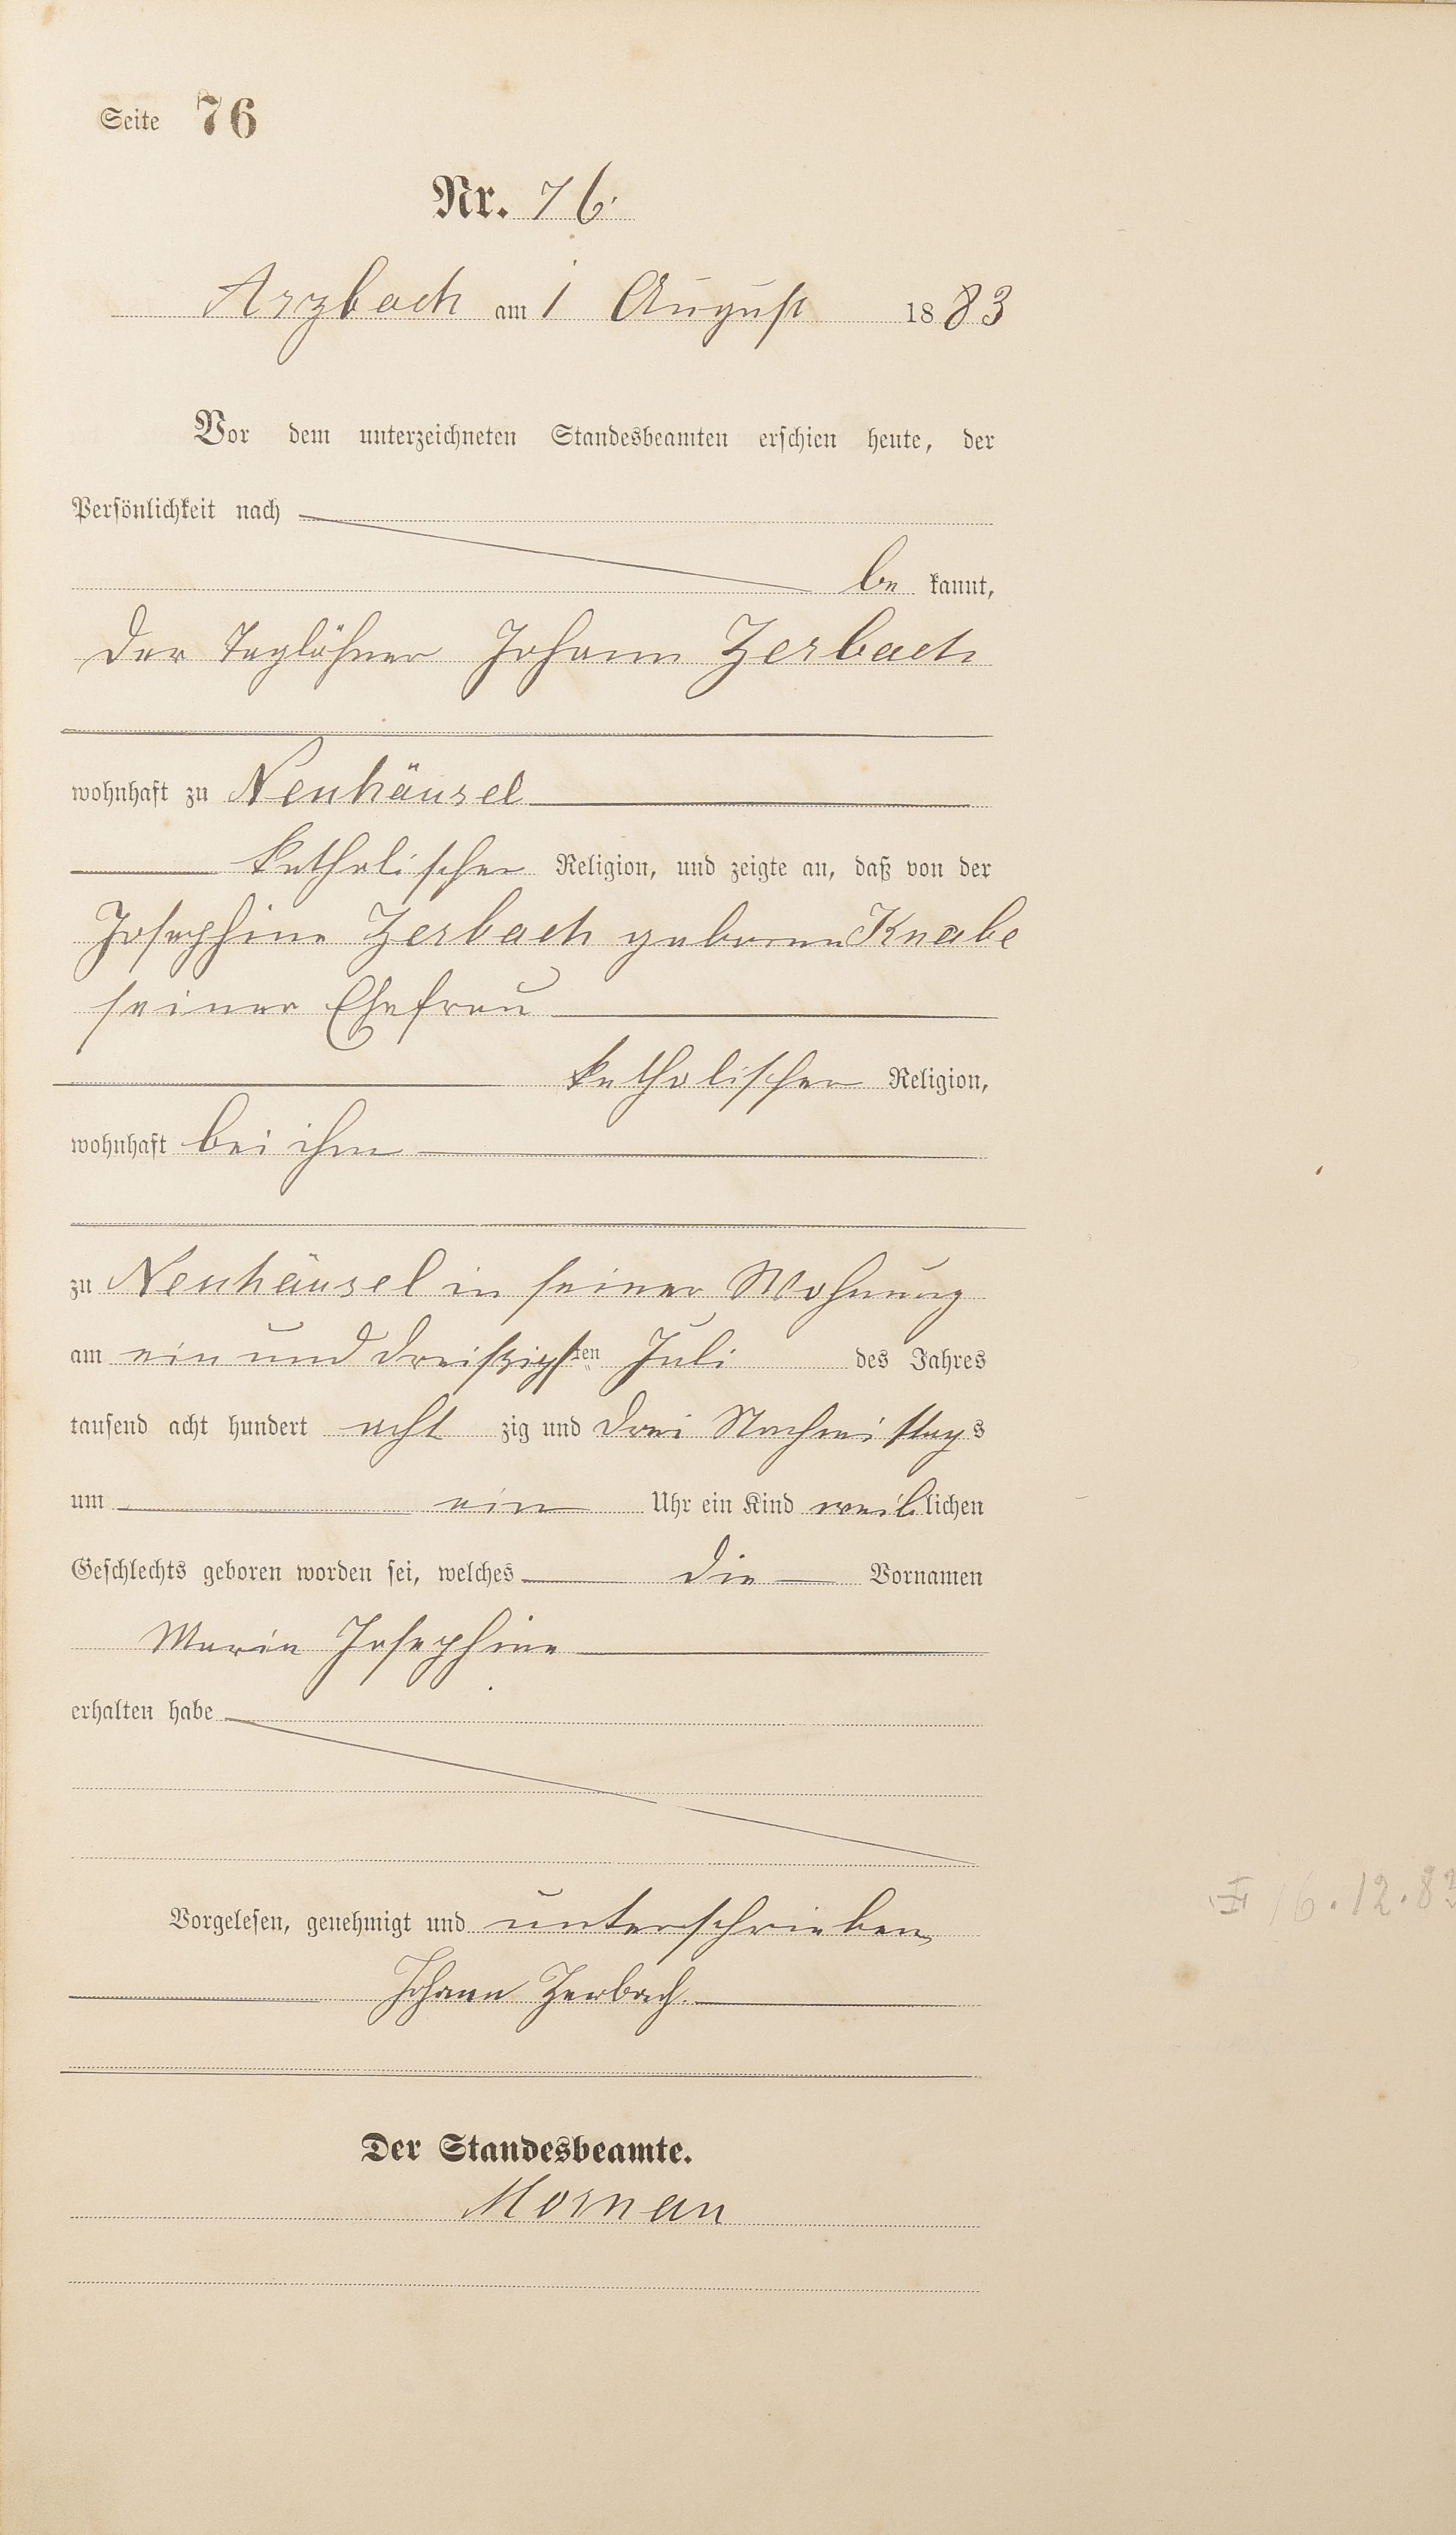 Seite 76
Nr. 76.
Arzbach am 1 August 1883
Vor dem unterzeichneten Standesbeamten erschien heute, der
Persönlichkeit nach
be kannt,
der Taglöhner Johann Zerbach
wohnhaft zu Neuhäusel
katholischer Religion, und zeigte an, daß von der
Josephine Zerbach geborene Knabe
seiner Ehefrau
katholischer Religion,
wohnhaft bei ihm
zu Neuhäusel in seiner Wohnung
am ein und dreißigsten Juli des Jahres
tausend acht hundert acht zig und drei Nachmittags
um ein Uhr ein Kind weiblichen
Geschlechts geboren worden sei, welches die Vornamen
Maria Josephine
erhalten habe
16.12.83
Vorgelesen, genehmigt und unterschrieben
Johann Zerbach.
Der Standesbeamte.